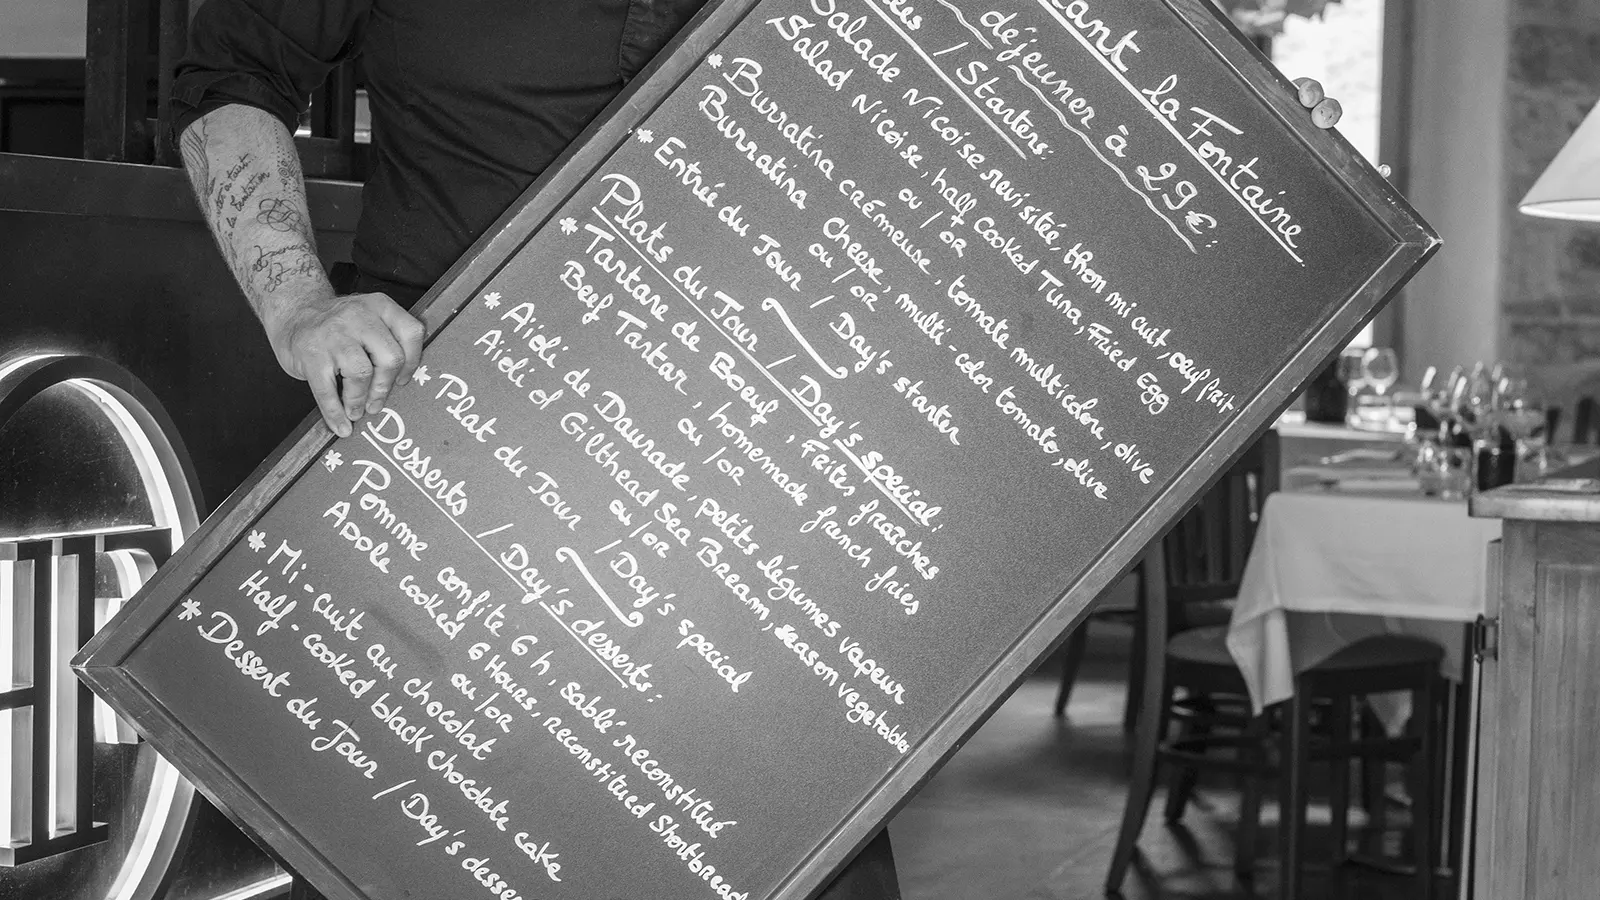 la Fontaine
déjeuner à 29€:
/ Starters:
Salade Nicoise revisitée, thon mi cuit, oeuf frit
Salad Nicoise, half Cooked Tuna, Fried Egg
ou / or
* Burratina crémeuse, tomate multicolor, olive
Burratina Cheese, multi-color tomato, olive
ou / or
* Entrée du Jour / Day's starter
Plats du Jour / Day's special:
* Tartare de Boeuf, Frites fraîches
Beef Tartar, homemade french fries
ou / or
* Aïoli de Daurade, petits légumes vapeur
Aïoli of Gilthead Sea Bream, season vegetables
ou / or
* Plat du Jour / Day's special
Desserts / Day's desserts:
* Pomme confite 6h, sablé reconstitué
Apple cooked 6 Hours, reconstitued Shortbread
ou / or
* Mi-cuit au chocolat
Half-cooked black chocolate cake
* Dessert du Jour / Day's